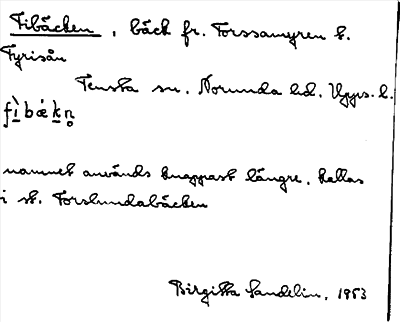 Fibäcken, bäck fr. Forssamyren t.
Fyrisån
Tensta sn. Norunda hd. Upps. l.
fì bǽ kn̥
namnet används knappast längre, kallas
i st. Forslundabäcken
Birgitta Sandelin, 1953